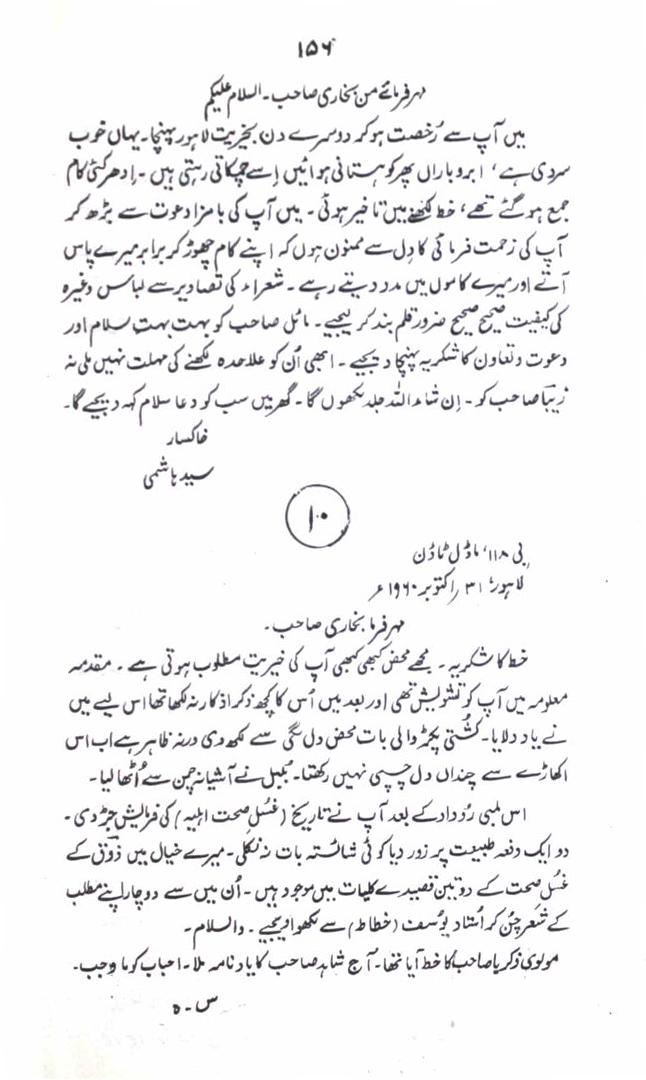 ۱۵۶
مہر فرمائے من بخاری صاحب۔ السلام علیکم
میں آپ سے رُخصت ہو کر دوسرے دن بخیریت لاہور پہنچا۔ یہاں خوب
سردی ہے، ابر و باراں پھر کوہستانی ہوائیں اِسے چمکاتی رہتی ہیں۔ اِدھر کئی کام
جمع ہو گئے تھے، خط لکھنے میں تاخیر ہوئی۔ میں آپ کی بامزا دعوت سے بڑھ کر
آپ کی زحمت فرمائی کا دِل سے ممنون ہوں کہ اپنے کام چھوڑ کر برابر میرے پاس
آتے اور میرے کاموں میں مدد دیتے رہے۔ شعراء کی تصاویر سے لباس وغیرہ
کی کیفیت صحیح صحیح ضرور قلم بند کر لیجیے۔ مائل صاحب کو بہت بہت سلام اور
دعوت و تعاون کا شکریہ پہنچا دیجیے۔ ابھی اُن کو علاحدہ لکھنے کی مہلت نہیں ملی نہ
زیبا صاحب کو۔ اِن شاء اللہ جلد لکھوں گا۔ گھر میں سب کو دعا سلام کہہ دیجیے گا۔
خاکسار
سید ہاشمی
۱۰
بی ۱۱۸، ماڈل ٹاؤن
لاہور، ۳۱ اکتوبر ۱۹۶۰ء
مہر فرما بخاری صاحب۔
خط کا شکریہ۔ مجھے محض کبھی کبھی آپ کی خیریت مطلوب ہوتی ہے۔ مقدمہ
معلومہ میں آپ کو تشویش تھی اور بعد میں اُس کا کچھ ذکر اذکار نہ لکھا تھا اس لیے میں
نے یاد دلایا۔ کُشتی پکڑ والی بات محض دل لگی سے لکھ دی ورنہ ظاہر ہے اب اس
اکھاڑے سے چنداں دل چسپی نہیں رکھتا۔ بُلبل نے آشیانہ چمن سے اُٹھا لیا۔
اس لمبی رُوداد کے بعد آپ نے تاریخ (غُسلِ صحت اہلیہ) کی فرمایش جڑ دی۔
دو ایک دفعہ طبیعت پر زور دیا کوئی شائستہ بات نہ نکلی۔ میرے خیال میں ذوق کے
غُسلِ صحت کے دو تین قصیدے کلیات میں موجود ہیں۔ اُن میں سے دو چار اپنے مطلب
کے شعر چُن کر اُستاد یُوسف (خطاط) سے لکھوا دیجیے۔ والسلام۔
مولوی ذکریا صاحب کا خط آیا تھا۔ آج شاہد صاحب کا یاد نامہ ملا۔ احباب کو ما وجب۔
س۔ ہ